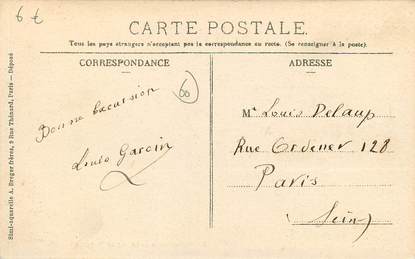 6 €
CARTE POSTALE.
Tous les pays étrangers n'acceptent pas la correspondance au recto. (Se renseigner à la poste).
CORRESPONDANCE
ADRESSE
60
Bonne excursion
Garcin
Mr Louis Delaup
Rue Ordener 128
Paris
Seine
Simi-aquarelle A. Breger frères, 9 Rue Thénard, Paris — Déposé